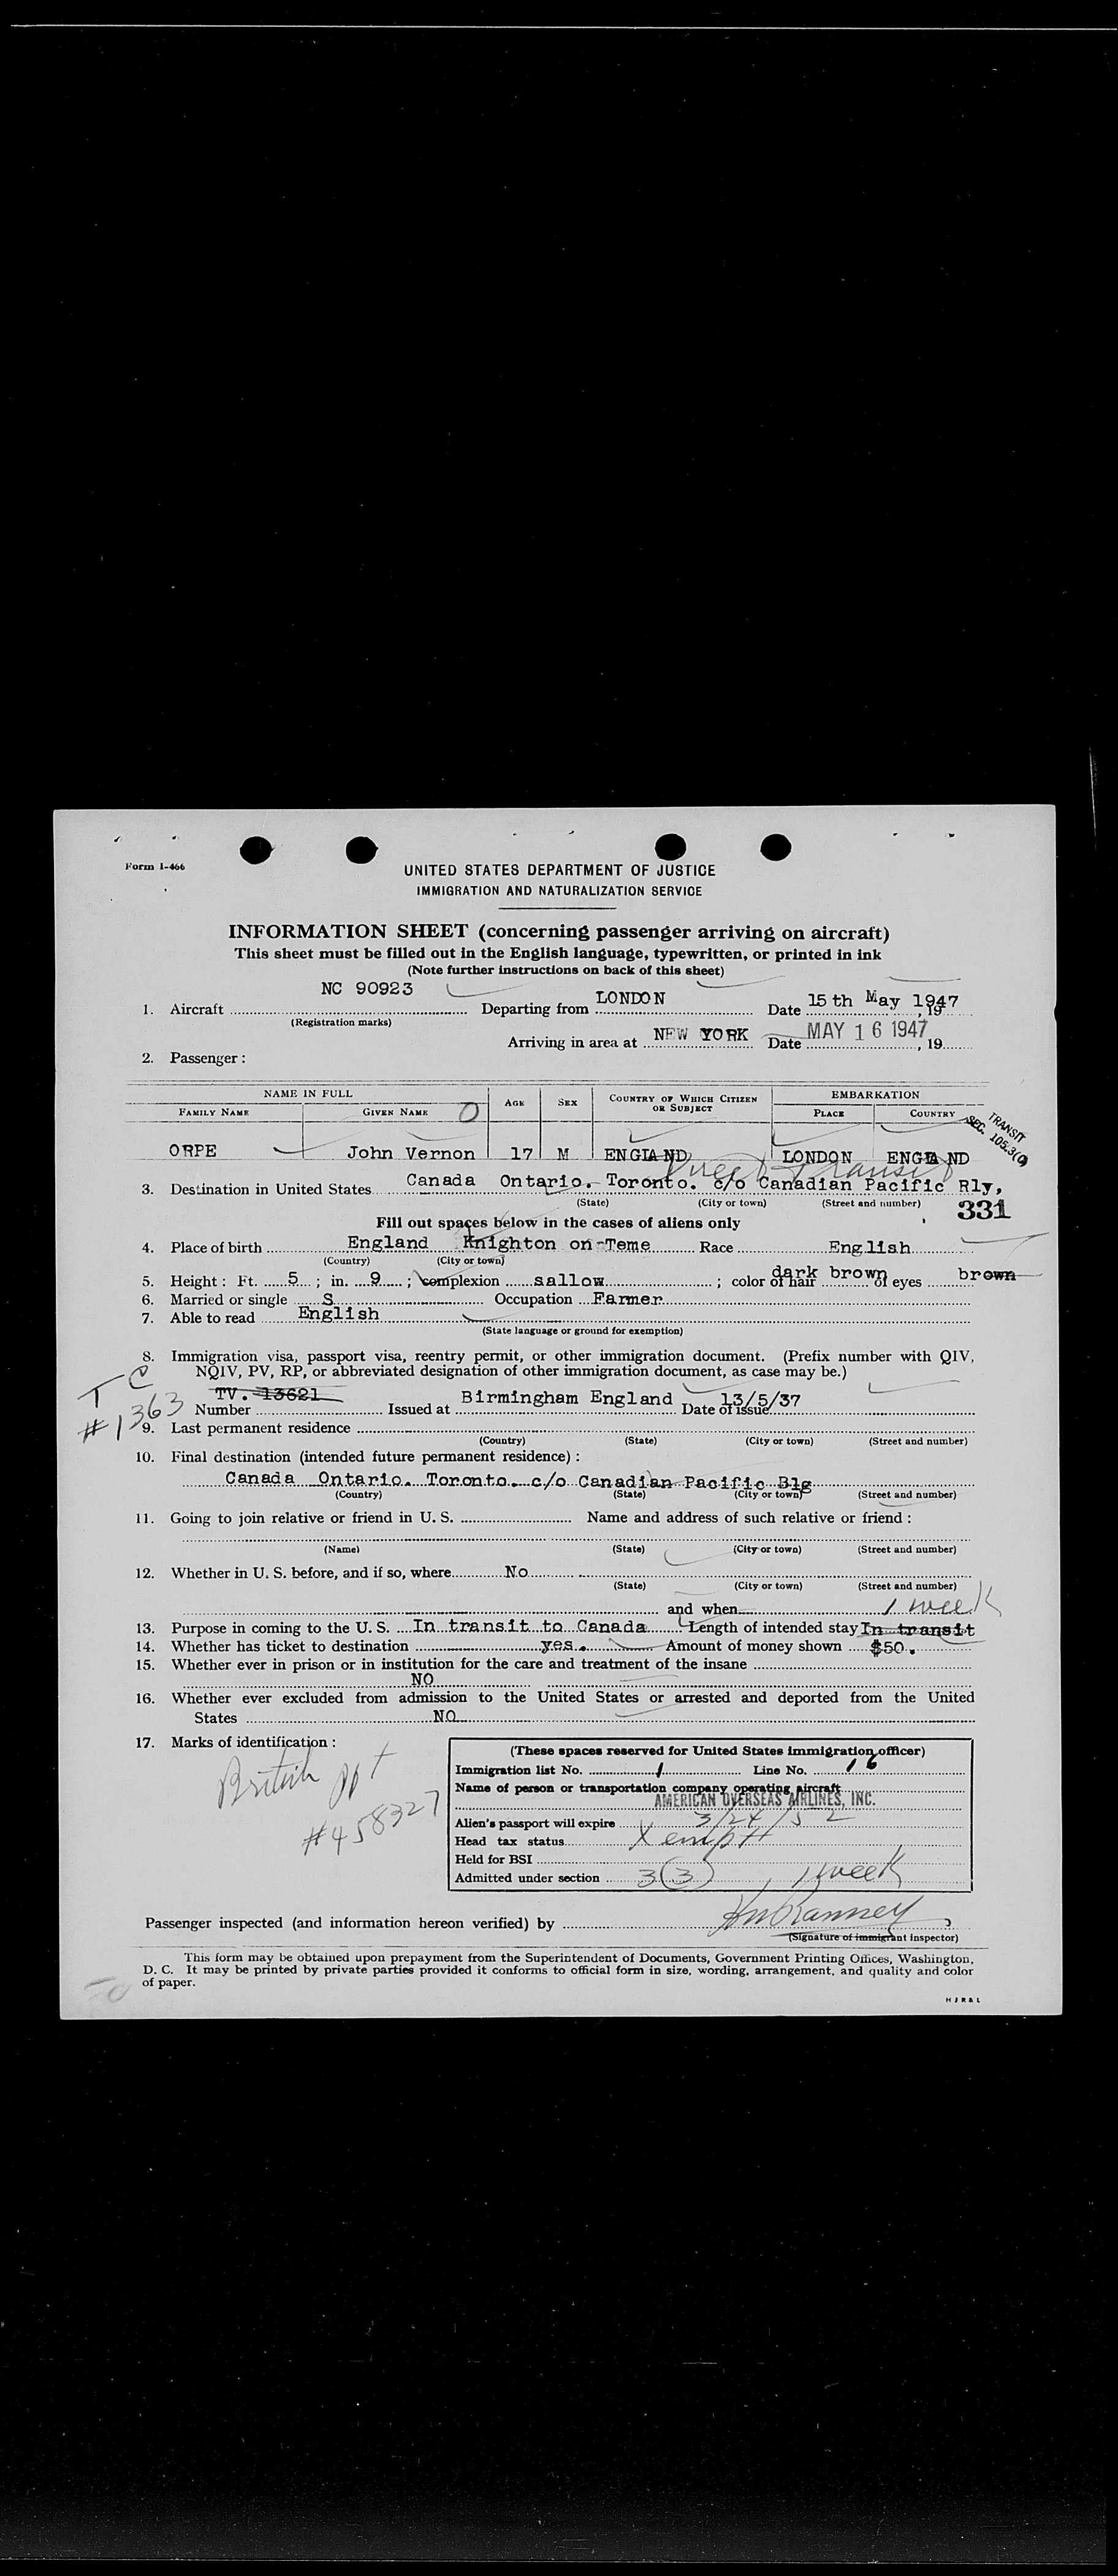 Form I-466
UNITED STATES DEPARTMENT OF JUSTICE
IMMIGRATION AND NATURALIZATION SERVICE
INFORMATION SHEET (concerning passenger arriving on aircraft)
This sheet must be filled out in the English language, typewritten, or printed in ink
(Note further instructions on back of this sheet)
1. Aircraft NC 90923 Departing from LONDON Date 15th May 1947, 19
(Registration marks)
Arriving in area at NEW YORK Date MAY 16 1947, 19
2. Passenger:
NAME IN FULL AGE SEX COUNTRY OF WHICH CITIZEN OR SUBJECT EMBARKATION
FAMILY NAME GIVEN NAME O PLACE COUNTRY
TRANSIT
SEC. 105.3(
ORPE John Vernon 17 M ENGLAND LONDON ENGLAND
Direct Transit
3. Destination in United States Canada Ontario. Toronto. c/o Canadian Pacific Rly,
(State) (City or town) (Street and number) 331
Fill out spaces below in the cases of aliens only
4. Place of birth England Knighton on-Teme Race English
(Country) (City or town)
5. Height: Ft. 5; in. 9; complexion sallow; color of hair dark brown of eyes brown
6. Married or single S Occupation Farmer
7. Able to read English
(State language or ground for exemption)
8. Immigration visa, passport visa, reentry permit, or other immigration document. (Prefix number with QIV,
NQIV, PV, RP, or abbreviated designation of other immigration document, as case may be.)
TC
#1363
TV. 13621
Number Issued at Birmingham England Date of issue 13/5/37
9. Last permanent residence
(Country) (State) (City or town) (Street and number)
10. Final destination (intended future permanent residence):
Canada Ontario. Toronto. c/o Canadian Pacific Blg
(Country) (State) (City or town) (Street and number)
11. Going to join relative or friend in U. S. Name and address of such relative or friend:
(Name) (State) (City or town) (Street and number)
12. Whether in U. S. before, and if so, where No
(State) (City or town) (Street and number)
and when 1 week
13. Purpose in coming to the U. S. In transit to Canada Length of intended stay In transit
14. Whether has ticket to destination yes. Amount of money shown $50.
15. Whether ever in prison or in institution for the care and treatment of the insane
NO
16. Whether ever excluded from admission to the United States or arrested and deported from the United
States NO
17. Marks of identification:
British ppt
#458327
(These spaces reserved for United States immigration officer)
Immigration list No. 1 Line No. 16
Name of person or transportation company operating aircraft
AMERICAN OVERSEAS AIRLINES, INC.
Alien's passport will expire 3/24/52
Head tax status Xempt
Held for BSI
Admitted under section 3(3) 1 week
Passenger inspected (and information hereon verified) by
(Signature of immigrant inspector)
This form may be obtained upon prepayment from the Superintendent of Documents, Government Printing Offices, Washington,
D. C. It may be printed by private parties provided it conforms to official form in size, wording, arrangement, and quality and color
of paper.
HJR&L